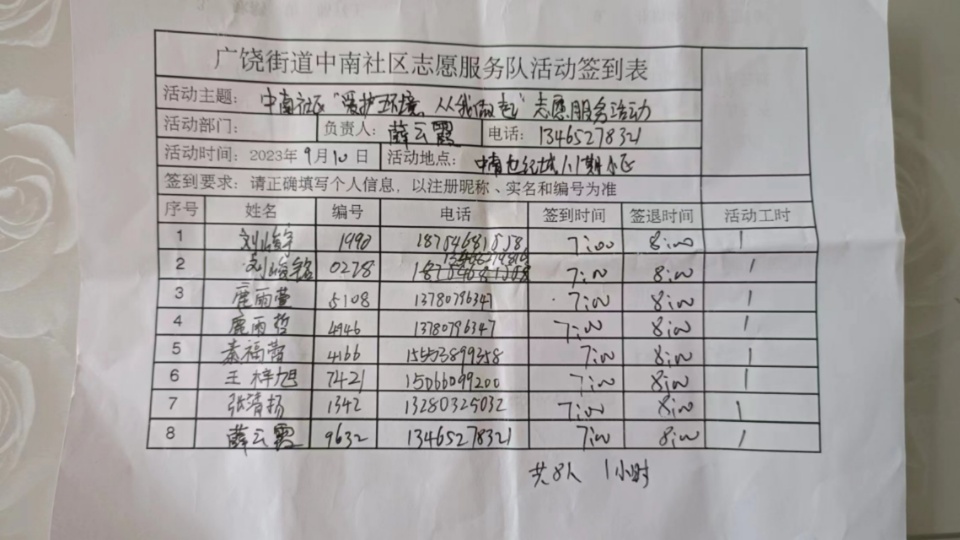 广饶街道中南社区志愿服务队活动签到表
活动主题： 中南社区"爱护环境、从我做起"志愿服务活动
活动部门： 负责人： 薛云霞 电话： 13465278321
活动时间： 2023年9月10日 活动地点： 中南世纪城
签到要求：请正确填写个人信息，以注册昵称、实名和编号为准
序号 姓名 编号 电话 签到时间 签退时间 活动工时
1 1990 18754681558 7:00 8:00 1
2 0278 7:00 8:00 1
3 鹿雨萱 5108 13780796347 7:00 8:00 1
4 鹿雨哲 4946 13780796347 7:00 8:00 1
5 4166 15553899358 7:00 8:00 1
6 王梓旭 7421 15066099200 7:00 8:00 1
7 张清扬 1342 13280325032 7:00 8:00 1
8 薛云霞 9632 13465278321 7:00 8:00 1
共8人 1小时